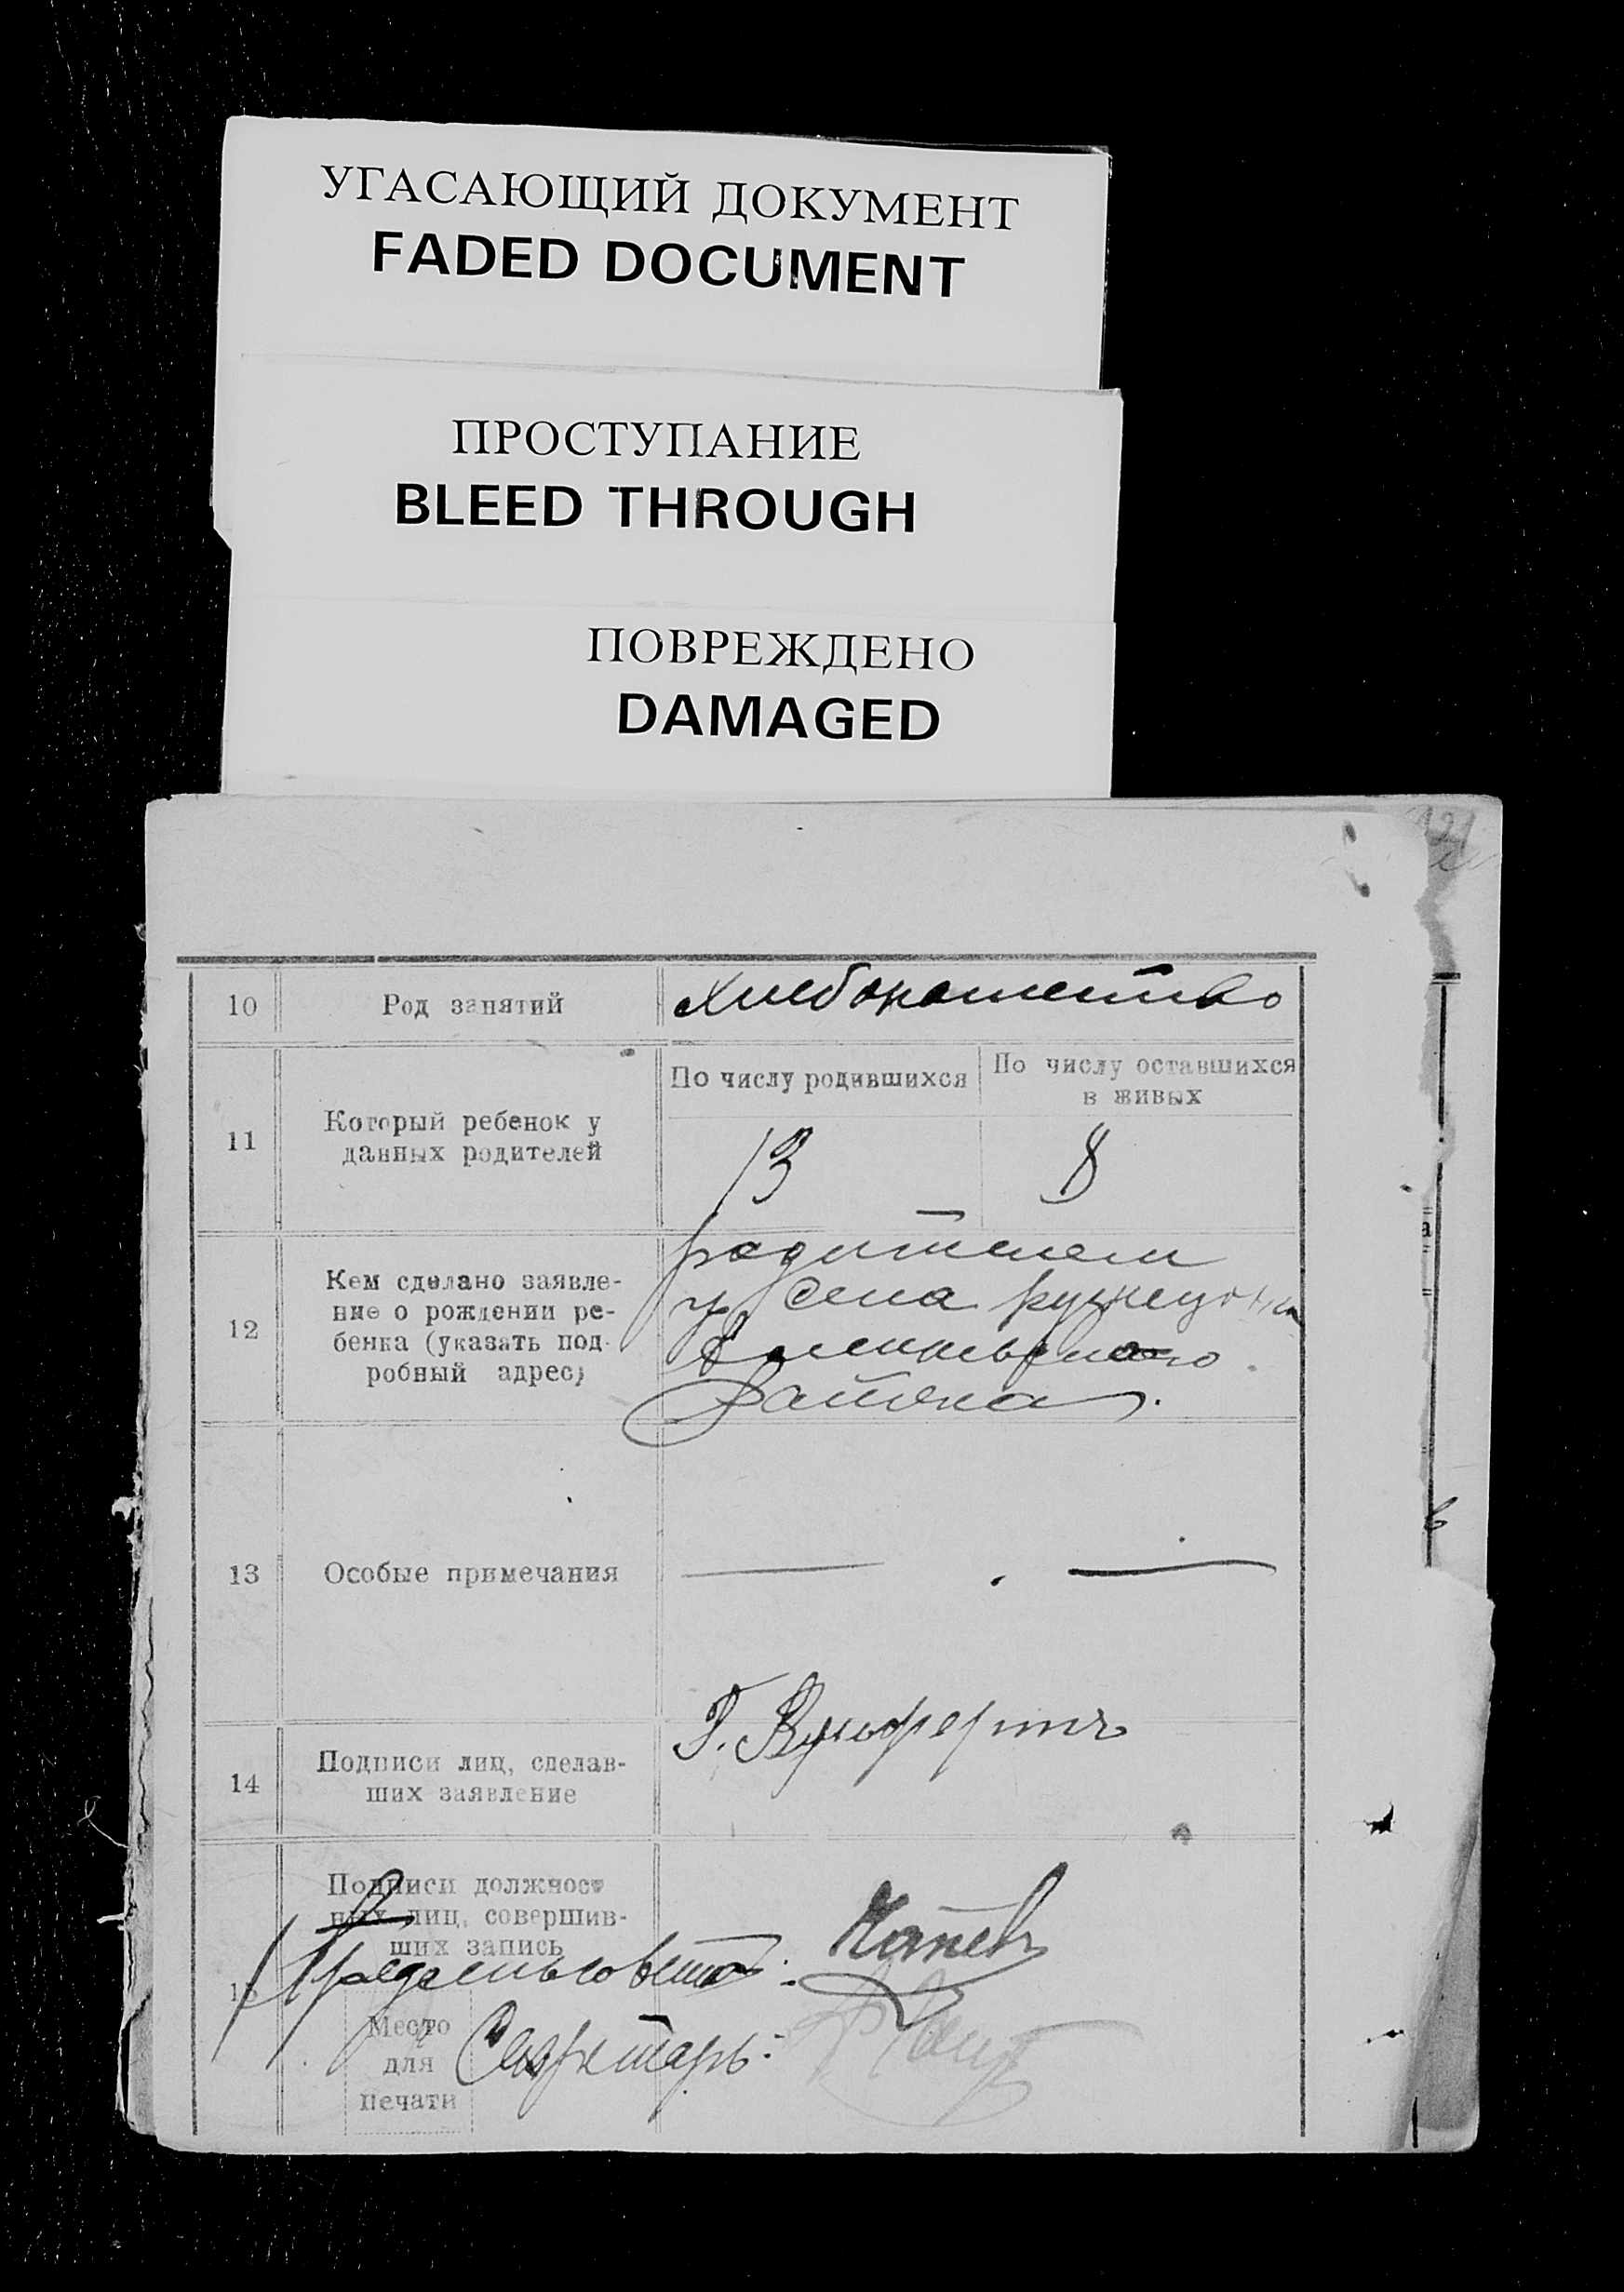 УГАСАЮЩИЙ ДОКУМЕНТ
FADED DOCUMENT
ПРОСТУПАНИЕ
BLEED THROUGH
ПОВРЕЖДЕНО
DAMAGED
10 Род занятий хлебопашество
11 Который ребенок у
данных родителей
По числу родившихся
По числу оставшихся
в живых
13
8
12 Кем сделано заявле-
ние о рождении ре-
бенка (указать под-
робный адрес)
родителем
села
района.
13 Особые примечания
14 Подписи лиц, сделав-
ших заявление
15 Подписи должност
ных лиц, совершив-
ших запись
Предсельсовета:
Место
для
печати
Секретарь: